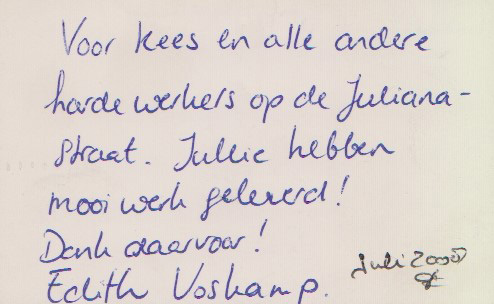 Voor Kees en alle andere
harde werkers op de Juliana-
straat. Jullie hebben
mooi werk geleverd!
Dank daarvoor!
Edith Voskamp.
juli 2000